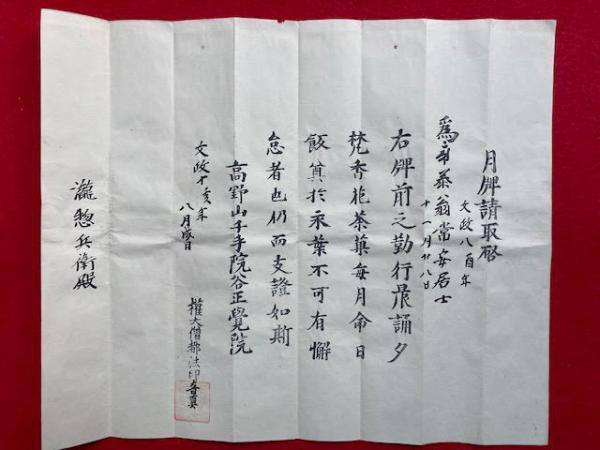 月牌請取
文政八酉年
為 泰翁常安居士
十一月廿八日
右牌前之勤行晨誦夕
梵香花茶菓毎月命日
飯奠於永葉不可有懈
怠者也仍而支證如斯
高野山千手院谷正覺院
文政十亥年
八月 日
權大僧都法印
瀧惣兵衛殿